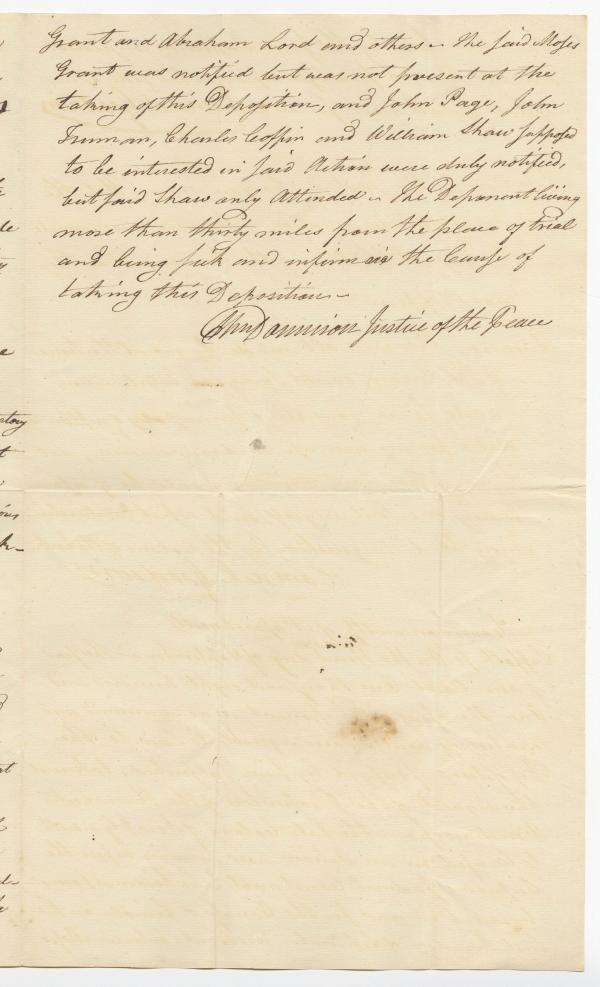 Grant and Abraham Lord and others – The said Moses
Grant was notified but was not present at the
taking of this Deposition, and John Page, John
Truman, Charles Coffin and William Shaw supposed
to be interested in said Action were duly notified,
but said Shaw only Attended – The Deponent living
more than thirty miles from the place of trial
and being sick and infirm is the Cause of
taking this Deposition –
Jno Dannison Justice of the Peace